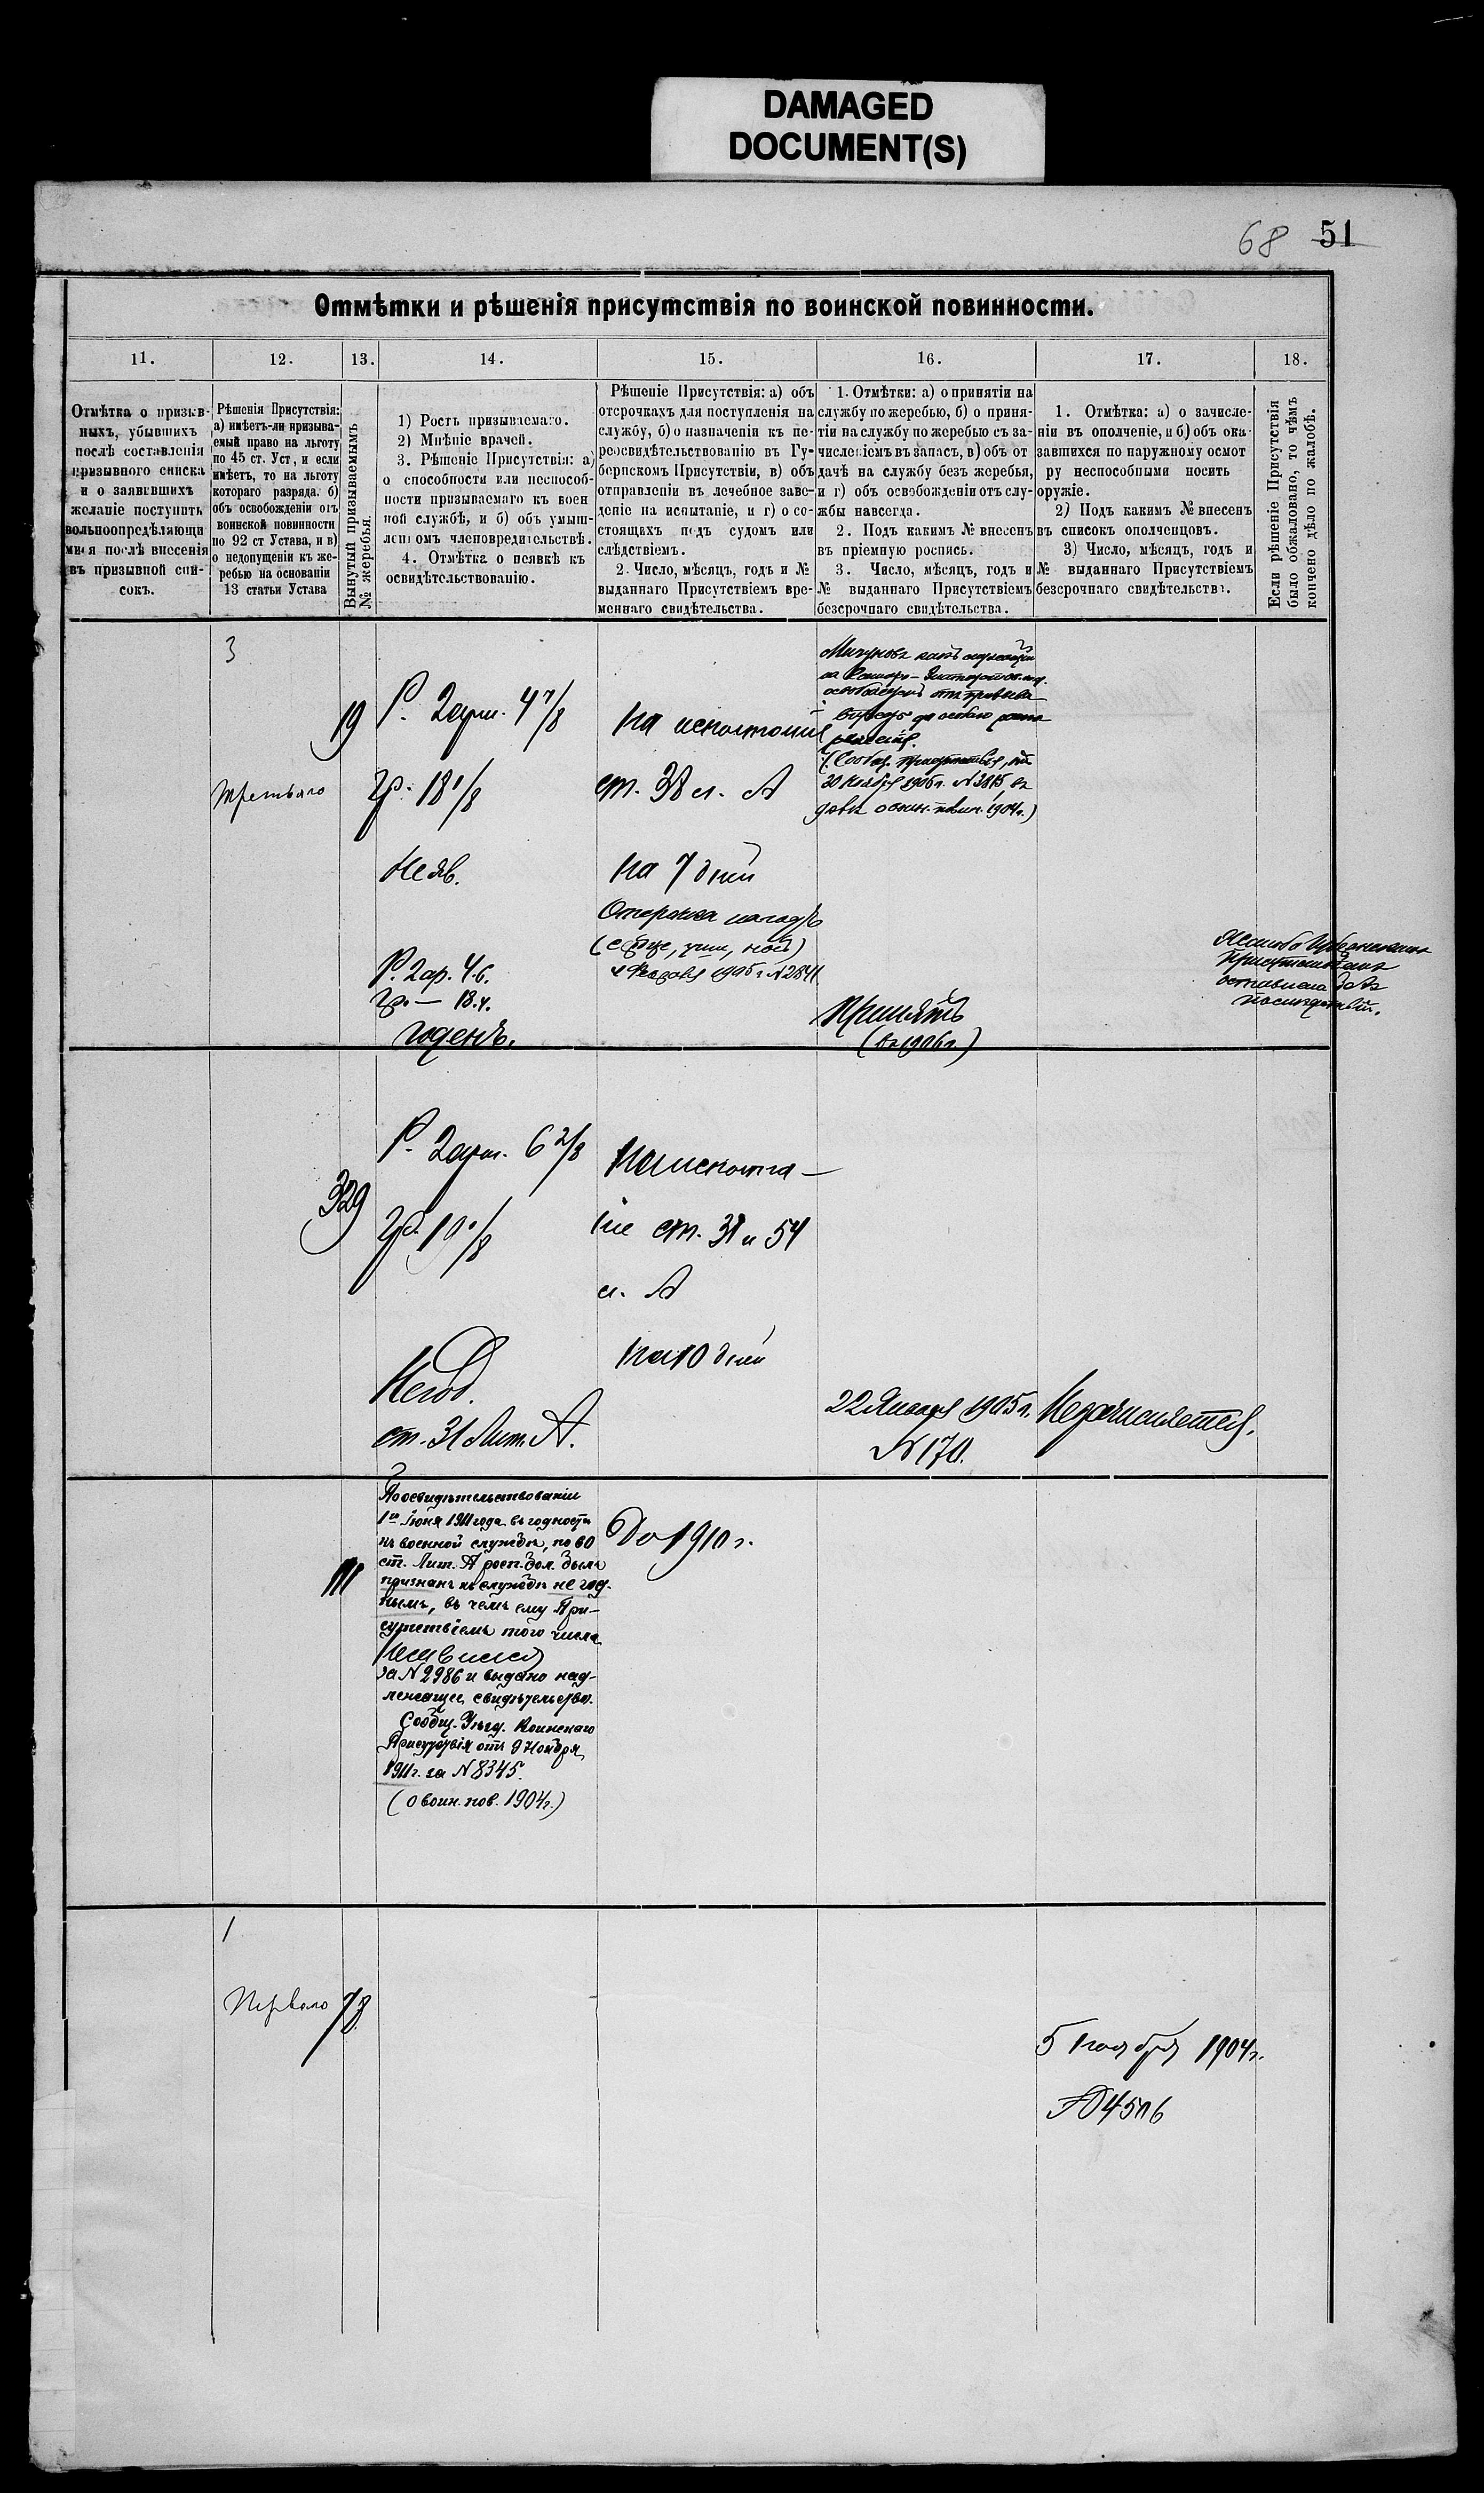 DAMAGED
DOCUMENT(S)
68 51
Отмѣтки и рѣшенія присутствія по воинской повинности.
11.
12.
13.
14.
15.
16.
17.
18.
Отмѣтка о призыв-
ныхъ, убывшихъ
послѣ составленія
призывного списка
и о заявившихъ
желаніе поступить
вольноопредѣляющи
мися послѣ внесенія
въ призывной спи-
сокъ.
Рѣшенія Присутствія:
а) имѣетъ-ли призыва-
емый право на льготу
по 45 ст. Уст, и если
имѣетъ, то на льготу
котораго разряда. б)
объ освобожденіи отъ
воинской повинности
по 92 ст Устава, и в)
о недопущеніи къ же-
ребью на основаніи
13 статьи Устава
Вынутый призываемымъ
№ жеребья.
1) Ростъ призываемаго.
2) Мнѣніе врачей.
3. Рѣшеніе Присутствія: а)
о способности или неспособ-
ности призываемаго къ воен
ной службѣ, и б) объ умыш-
ленномъ членовредительствѣ.
4. Отмѣтка о неявкѣ къ
освидѣтельствованію.
Рѣшеніе Присутствія: а) объ
отсрочкахъ для поступленія на
службу, б) о назначеніи къ пе-
реосвидѣтельствованію въ Гу-
бернскомъ Присутствіи, в) объ
отправленіи въ лечебное заве-
деніе на испытаніе, и г) о со-
стоящихъ подъ судомъ или
слѣдствіемъ.
2. Число, мѣсяцъ, годъ и №
выданнаго Присутствіемъ вре-
меннаго свидѣтельства.
1. Отмѣтки: а) о принятіи на
службу по жеребью, б) о приня-
тіи на службу по жеребью съ за-
численіемъ въ запасъ, в) объ от
дачѣ на службу безъ жеребья,
и г) объ освобожденіи отъ слу-
жбы навсегда.
2. Подъ какимъ № внесенъ
въ пріемную роспись.
3. Число, мѣсяцъ, годъ и
№ выданнаго Присутствіемъ
безсрочнаго свидѣтельства.
1. Отмѣтка: а) о зачисле-
ніи въ ополченіе, и б) объ ока
завшихся по наружному осмот
ру неспособными носить
оружіе.
2) Подъ какимъ № внесенъ
въ списокъ ополченцовъ.
3) Число, мѣсяцъ, годъ и
№ выданнаго Присутствіемъ
безсрочнаго свидѣтельства.
Если рѣшеніе Присутствія
было обжаловано, то чѣмъ
кончено дѣло по жалобѣ.
3
Третьяго
19
Р. 2 арш. 4 7/8
гр. 18 1/8
Неяв.
Р. 2 ар. 4.6.
гр. — 18.4.
годенъ.
на испытаніе
ст. 38 л. А
на 7 дней
Отсрочка на годъ
1905 г. № 2841
освобожденъ отъ призыва
30 Ноября 1905 г. № 3815, въ
дѣлѣ о воин. повин. 1904 г.)
Принятъ
(въ 1906 г.)
Жалоба Губернскимъ
Присутствіемъ
оставлена безъ
послѣдствій.
329
Р. 2 арш. 6 2/8
Негод.
ст. 31 Лит. А.
На испыта-
ніе ст. 31 и 54
л. А
на 10 дней
22 Января 1905 г.
№ 170.
Не зачисляется.
111
По освидѣтельствованіи
1го Іюня 1911 года въ годности
къ военной службѣ, по 60
ст. Лит. А росп. бол. былъ
признанъ къ службѣ не год-
нымъ, въ чемъ ему При-
сутствіемъ того числа
за № 2986 и выдано над-
лежащее свидѣтельство.
Сообщ. Уѣзд. Воинскаго
Присутствія отъ 9 Ноября
1911 г. за № 8345.
(о воин. пов. 1904 г.)
До 1910 г.
1
Перваго
78
5 Ноября 1904 г.
№ 4506